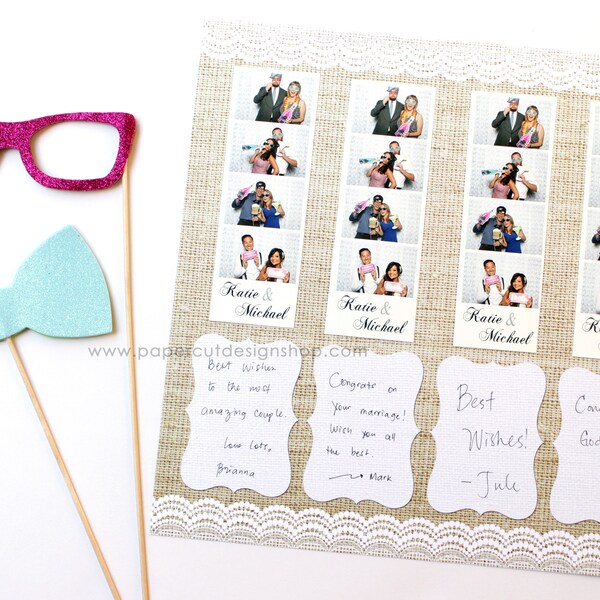 Katie &
Michael
Katie &
Michael
Katie &
Michael
Katie &
www.papercutdesignshop.com
Best Wishes
to the most
amazing couple.
Love Lots,
Brianna
Congrats on
your marriage!
Wish you all
the best.
Mark
Best
Wishes!
- Jule
Con
God